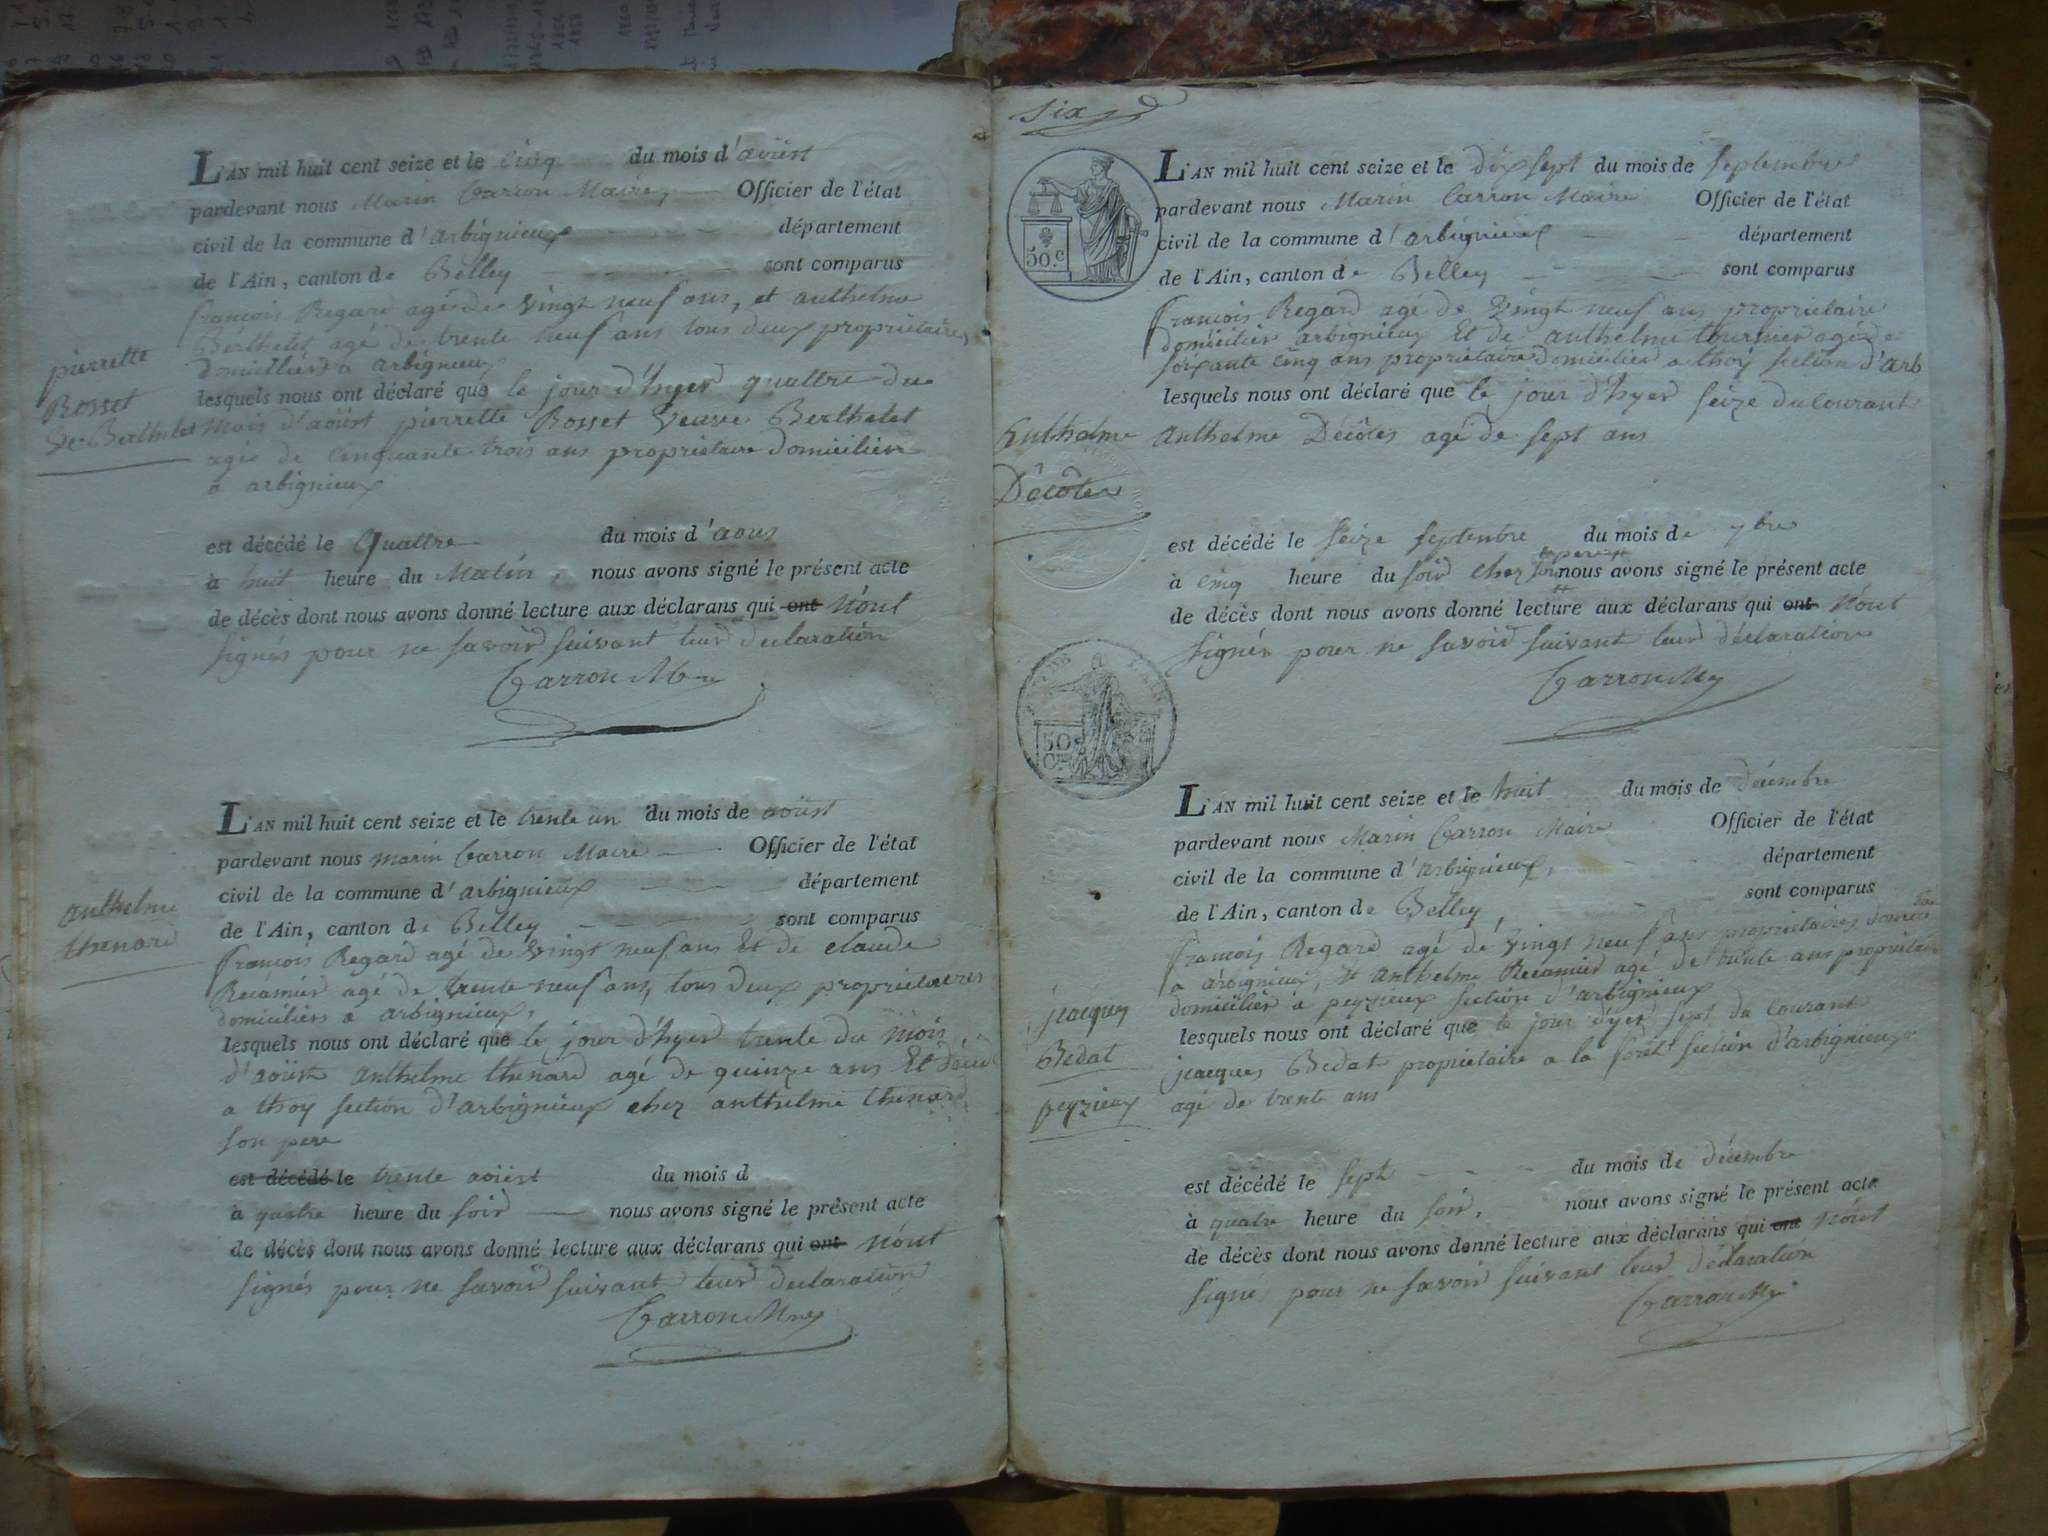 L'AN mil huit cent seize et le cinq du mois d'aoüst
pardevant nous Marin Carron Maire Officier de l'état
civil de la commune d'arbignieux département
de l'Ain, canton de Belley sont comparus
francois Regard agé de vingt neuf ans, et anthelme
Berthelet agé de trente neuf ans tous deux proprietaires
domicilliés a arbignieux
lesquels nous ont déclaré que le jour d'hyer quattre du
mois d'aoüst pierrette Rosset veuve Berthelet
agée de cinquante trois ans propriétaire domiciliée
a arbignieux
pierrette
Rosset
ve. Berthelet
est décédé le quattre du mois d'aous
à huit heure du Matin, nous avons signé le présent acte
de décès dont nous avons donné lecture aux déclarans qui ont n'ont
signés pour ne savoir suivant leur declaration
Carron Mre
L'AN mil huit cent seize et le trente un du mois de aoüst
pardevant nous marin Carron Maire Officier de l'état
civil de la commune d'arbignieux département
de l'Ain, canton de Belley sont comparus
francois Regard agé de vingt neuf ans Et de claude
Recamier agé de trente neuf ans, tous deux proprietaires
domiciliés a arbignieux,
lesquels nous ont déclaré que le jour d'hyer trente du mois
d'aoüst anthelme thenard agé de quinze ans Et décédé
a thoy section d'arbignieux chez anthelme thenard
son pere
anthelme
thenard
est décédé le trente aoüst du mois d
à quatre heure du soir nous avons signé le présent acte
de décès dont nous avons donné lecture aux déclarans qui ont n'ont
signés pour ne savoir suivant leur declaration
Carron Mre
six
50.c
L'AN mil huit cent seize et le dix sept du mois de septembre
pardevant nous Marin Carron Maire Officier de l'état
civil de la commune d'arbignieux département
de l'Ain, canton de Belley sont comparus
francois Regard agé de vingt neuf ans proprietaire
domicilié arbignieux Et de anthelme tournier agé de
soixante cinq ans proprietaire domicilié a thoy section d'arb
lesquels nous ont déclaré que le jour d'hyer seize du courant
anthelme Décôtes agé de sept ans
Anthelme
Décôtes
est décédé le seize septembre du mois de 7bre
à cinq heure du soir chez son pere nous avons signé le présent acte
de décès dont nous avons donné lecture aux déclarans qui ont n'ont
signés pour ne savoir suivant leur déclaration
Carron Mre
50
C.
L'AN mil huit cent seize et le huit du mois de décembre
pardevant nous Marin Carron Maire Officier de l'état
civil de la commune d'arbignieux, département
de l'Ain, canton de Belley, sont comparus
francois Regard agé de vingt neuf ans propriétaires
a arbignieux, et anthelme Recamier agé de trente ans propriétaire
domicilié a peyzieux section d'arbignieux
lesquels nous ont déclaré que le jour d'yer sept du courant
jacques Bedat propriétaire a la forêt section d'arbignieux
agé de trente ans
jacques
Bedat
peyzieux
est décédé le sept du mois de décembre
à quatre heure du soir, nous avons signé le présent acte
de décès dont nous avons donné lecture aux déclarans qui ont n'ont
signé pour ne savoir suivant leur déclaration
Carron Mre